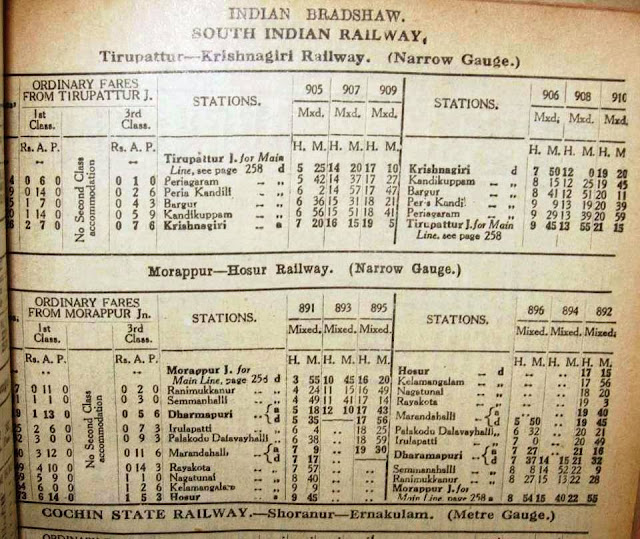 INDIAN BRADSHAW.
SOUTH INDIAN RAILWAY.
Tirupattur—Krishnagiri Railway. (Narrow Gauge.)
ORDINARY FARES FROM TIRUPATTUR J. STATIONS. 905 907 909 906 908 910
1st Class. 3rd Class. Mxd. Mxd. Mxd. STATIONS. Mxd. Mxd. Mxd.
Rs. A. P. Rs. A. P. H. M. H. M. H. M. H. M. H. M. H. M.
No Second Class accommodation
Tirupattur J. for Main
Line, see page 258 d 5 25 14 20 17 10 Krishnagiri d 7 50 12 0 19 20
0 6 0 0 1 0 Periagaram 5 42 14 37 17 27 Kandikuppam 8 15 12 25 19 45
0 14 0 0 2 6 Peria Kandili 6 2 14 57 17 47 Bargur 8 41 12 51 20 11
1 7 0 0 4 3 Bargur 6 36 15 31 18 21 9 9 13 19 20 39
1 14 0 0 5 9 Kandikuppam 6 56 15 51 18 41 Periagaram 9 29 13 39 20 59
2 7 0 0 7 6 Krishnagiri a 7 20 16 15 19 5 Tirupattur J. for Main 9 45 13 55 21 15
Line, see page 258
Morappur—Hosur Railway. (Narrow Gauge.)
ORDINARY FARES FROM MORAPPUR Jn. STATIONS. 891 893 895 896 894 892
1st Class. 3rd Class. Mixed. Mixed. Mixed. STATIONS. Mixed. Mixed. Mixed.
Rs. A. P. Rs. A. P. H. M. H. M. H. M. H. M. H. M. H. M.
No Second Class accommodation
Morappur J. for Hosur d 17 15
Main Line, page 258 d 3 55 10 45 16 20 Kelamangalam 17 56
0 11 0 0 2 0 Ranimukkanur 4 24 11 15 16 49 Nagatunai 18 20
1 1 0 0 3 0 Semmanhalli 4 49 11 41 17 14 Rayakota 19 3
1 13 0 0 5 6 Dharmapuri a 5 18 12 10 17 43 Marandahalli a 19 40
d 5 35 17 56 d 5 50 19 45
2 6 0 0 7 3 Irulapatti 6 4 18 25 Palakodu Dalavayhalli 6 32 20 21
3 0 0 0 9 3 Palakodu Dalavayhalli 6 38 18 59 Irulapatti 7 0 20 49
3 12 0 0 11 6 Marandahalli a 7 9 19 30 Dharamapuri a 7 27 21 16
d 7 17 d 7 37 14 15 21 32
4 10 0 0 14 3 Rayakota 7 57 Semmanhalli 8 8 14 52 22 3
5 9 0 1 1 0 Nagatunai 8 40 Ranimukkunur 8 27 15 13 22 28
6 0 0 1 2 6 Kelamangalam 9 9 Morappur J. for
6 14 0 1 5 3 Hosur a 9 45 Main Line, page 258 a 8 54 15 40 22 55
COCHIN STATE RAILWAY.—Shoranur—Ernakulam. (Metre Gauge.)